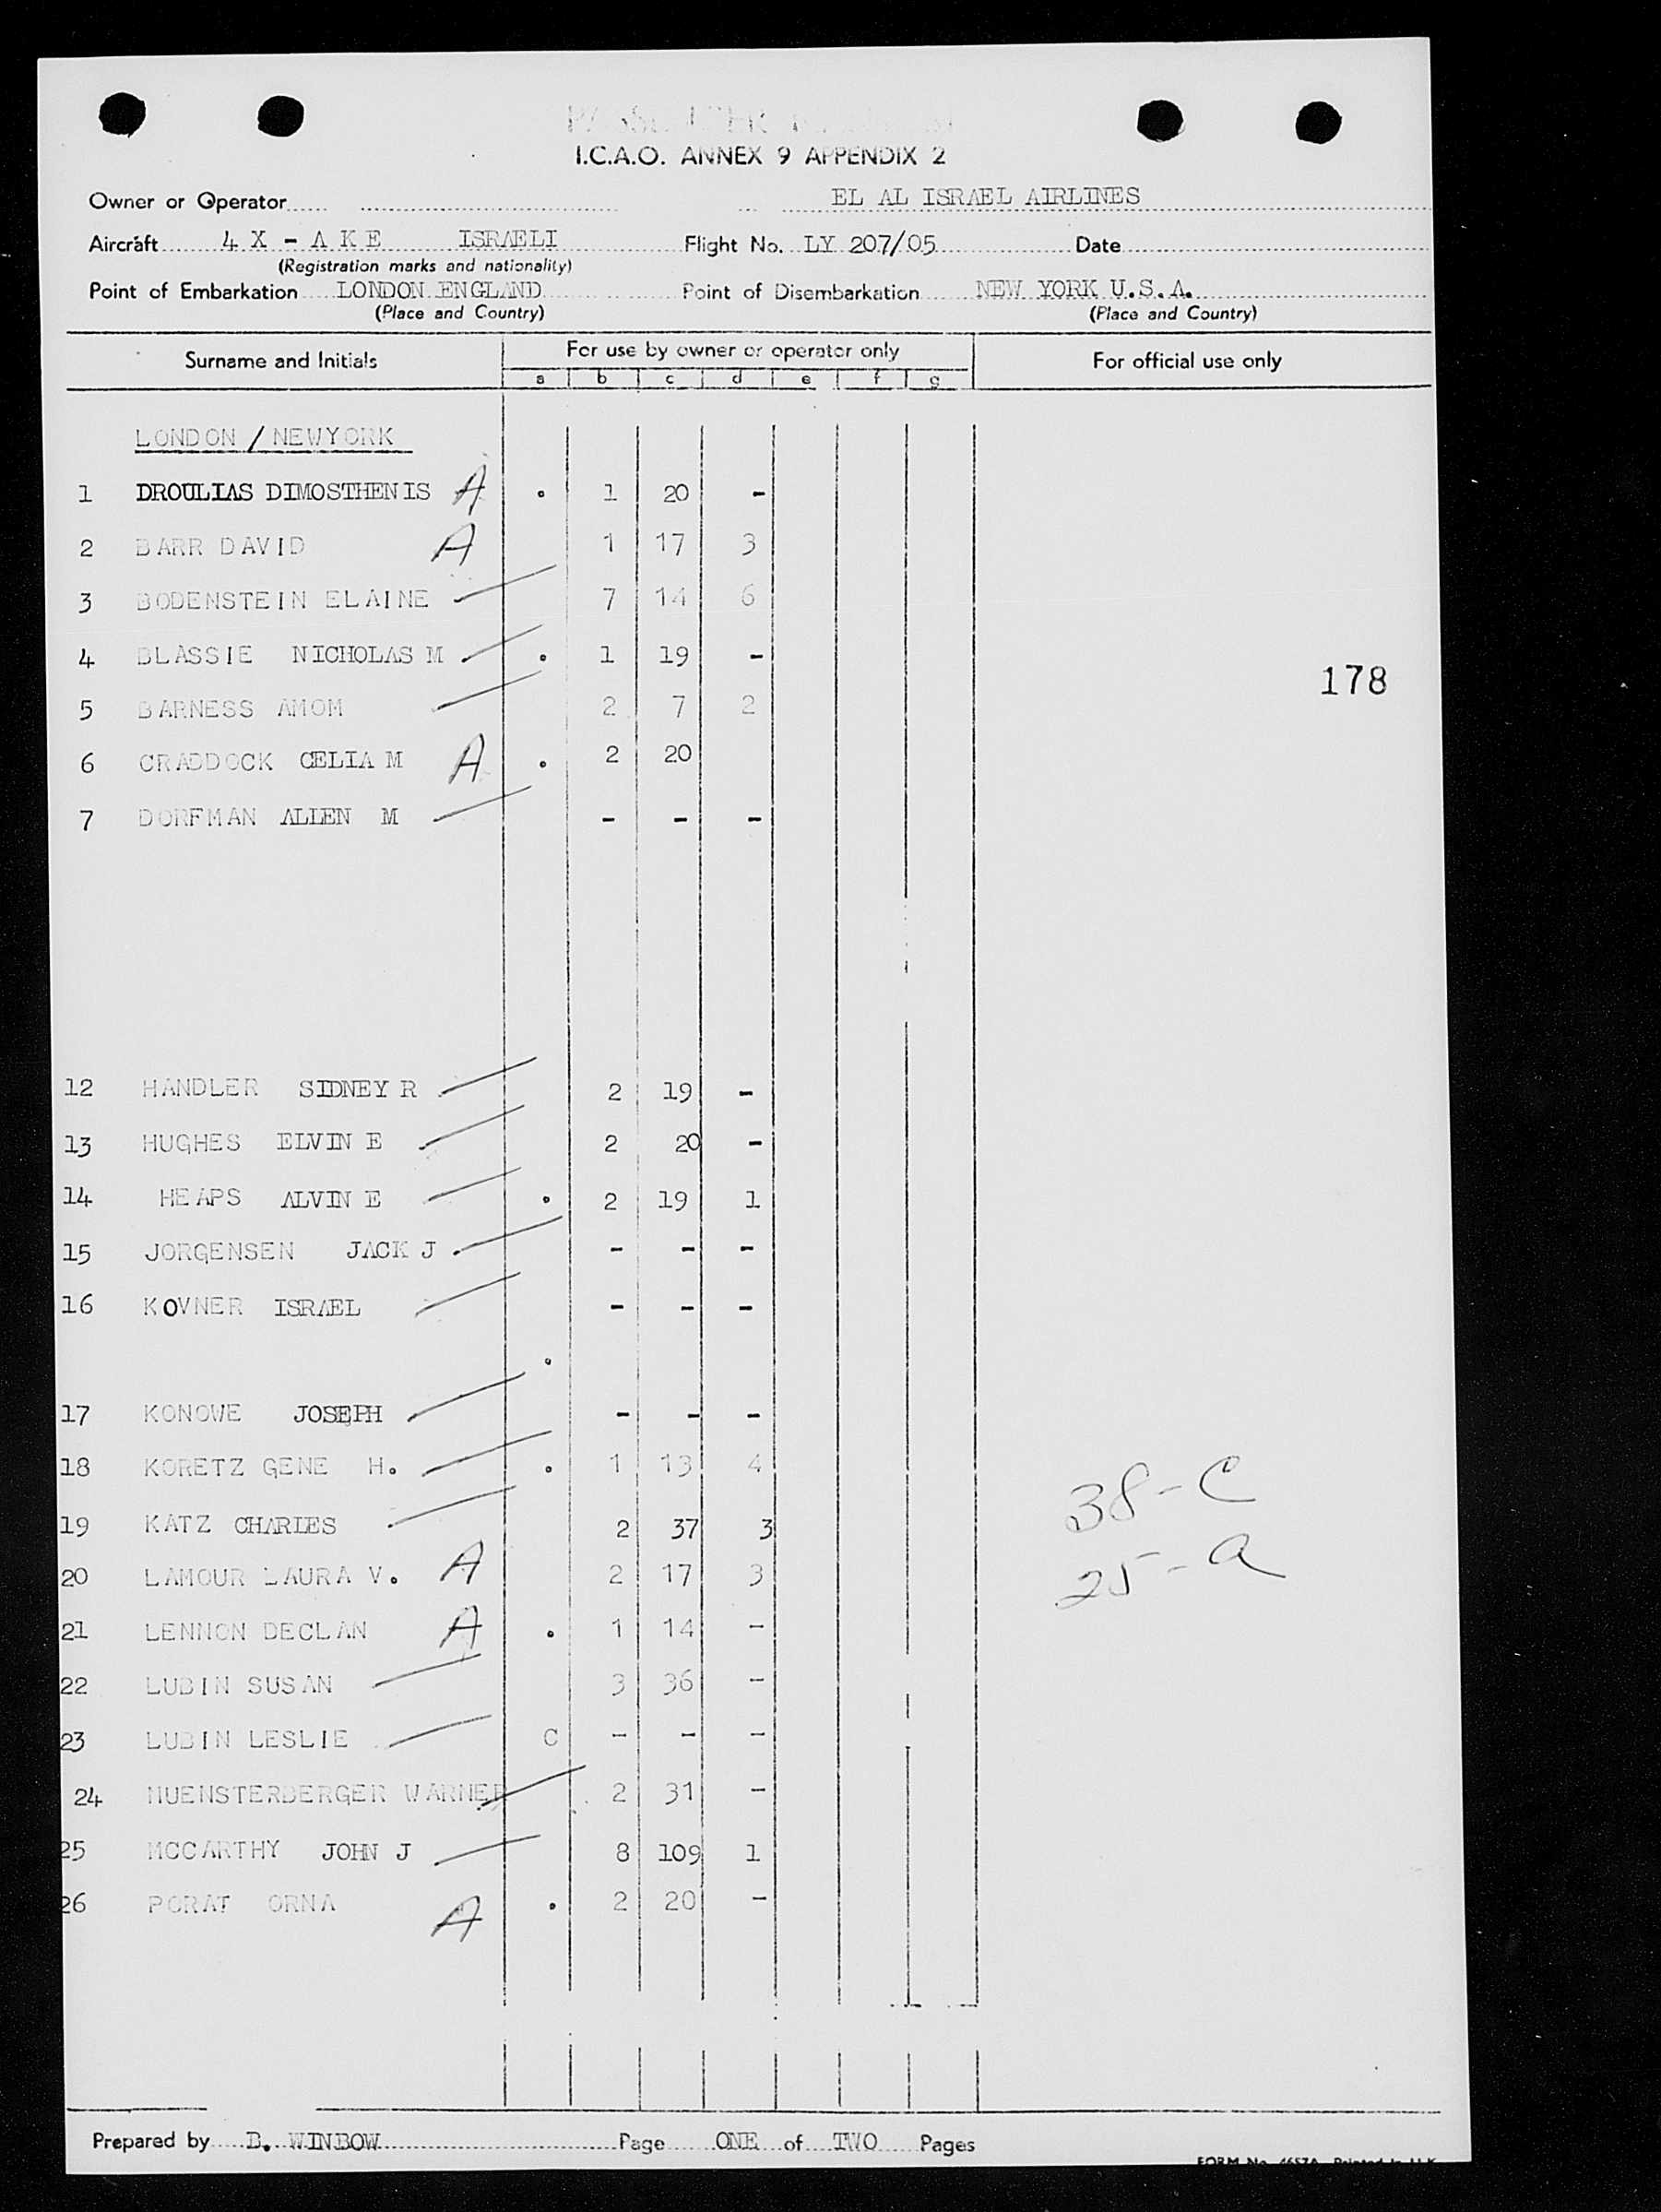 PASSENGER MANIFEST
I.C.A.O. ANNEX 9 APPENDIX 2
Owner or Operator EL AL ISRAEL AIRLINES
Aircraft 4 X - A K E ISRAELI Flight No. LY 207/05 Date
(Registration marks and nationality)
Point of Embarkation LONDON ENGLAND Point of Disembarkation NEW YORK U.S.A.
(Place and Country) (Place and Country)
Surname and Initials For use by owner or operator only For official use only
a b c d e f g
LONDON / NEWYORK
1 DROULIAS DIMOSTHENIS A . 1 20 -
2 BARR DAVID A 1 17 3
3 BODENSTEIN ELAINE 7 14 6
4 BLASSIE NICHOLAS M . 1 19 -
178
5 BARNESS AMOM 2 7 2
6 CRADDOCK CELIA M A . 2 20
7 DORFMAN ALLEN M - - -
12 HANDLER SIDNEY R 2 19 -
13 HUGHES ELVIN E 2 20 -
14 HEAPS ALVIN E . 2 19 1
15 JORGENSEN JACK J - - -
16 KOVNER ISRAEL - - -
.
17 KONOWE JOSEPH - - -
18 KORETZ GENE H. . 1 13 4
38-C
19 KATZ CHARLES 2 37 3
20 LAMOUR LAURA V. A 2 17 3
25-a
21 LENNON DECLAN A . 1 14 -
22 LUBIN SUSAN 3 36 -
23 LUBIN LESLIE C - - -
24 MUENSTERBERGER WARNER 2 31 -
25 MCCARTHY JOHN J 8 109 1
26 PORAT ORNA A . 2 20 -
Prepared by B. WINBOW Page ONE of TWO Pages
FORM No. 4657A Printed in U.K.